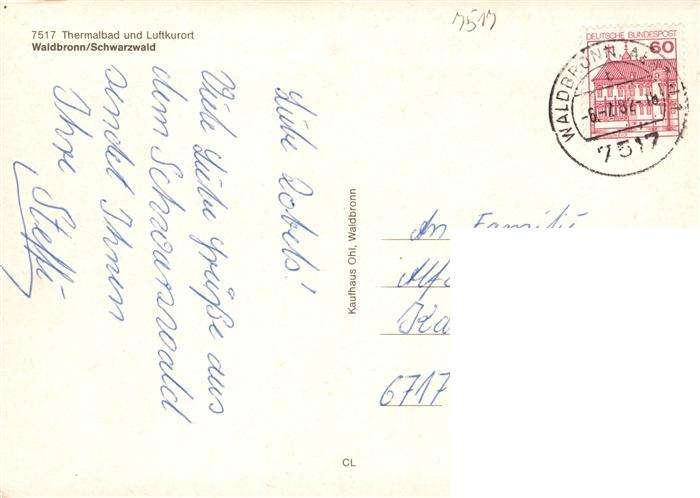 7517 Thermalbad und Luftkurort
Waldbronn/Schwarzwald
7517
DEUTSCHE BUNDESPOST
60
WALDBRONN
-6.-7.82-18
7517
Liebe Zobels!
Viele liebe Grüße aus
dem Schwarzwald
sendet Ihnen
Ihre Steffi
Kaufhaus Ohl, Waldbronn
An Familie
Alf
Ka
6717
CL